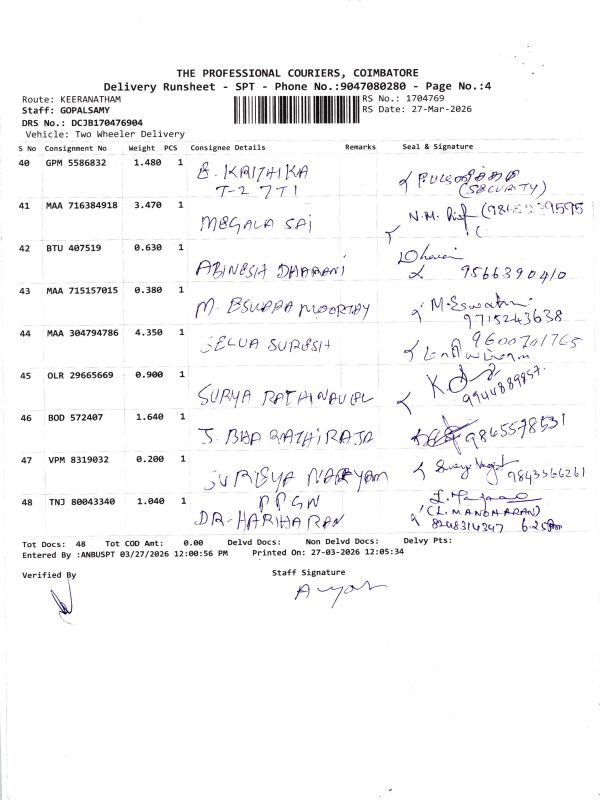 THE PROFESSIONAL COURIERS, COIMBATORE
Delivery Runsheet - SPT - Phone No.:9047080280 - Page No.:4
Route: KEERANATHAM RS No.: 1704769
Staff: GOPALSAMY RS Date: 27-Mar-2026
DRS No.: DCJB170476904
Vehicle: Two Wheeler Delivery
S No Consignment No Weight PCS Consignee Details Remarks Seal & Signature
40 GPM 5586832 1.480 1 B. KRITHIKA
T-2 7T1 (SECURITY)
41 MAA 716384918 3.470 1 MEGALA SAI N.M.
42 BTU 407519 0.630 1 ABINESH DHARANI 9566390410
43 MAA 715157015 0.380 1 M. ESWARA MOORTHY M. Eswara
9715243638
44 MAA 304794786 4.350 1 SELVA SURESH 9600701765
45 OLR 29665669 0.900 1 SURYA RATHINAVEL 9944889857
46 BOD 572407 1.640 1 J. BHARATHI RAJA 9865578531
47 VPM 8319032 0.200 1 SURIYA NARAYAN 9843566261
48 TNJ 80043340 1.040 1 PPGN
DR. HARIHARAN (L. MANOHARAN)
8248314347 6.25pm
Tot Docs: 48 Tot COD Amt: 0.00 Delvd Docs: Non Delvd Docs: Delvy Pts:
Entered By :ANBUSPT 03/27/2026 12:00:56 PM Printed On: 27-03-2026 12:05:34
Verified By Staff Signature